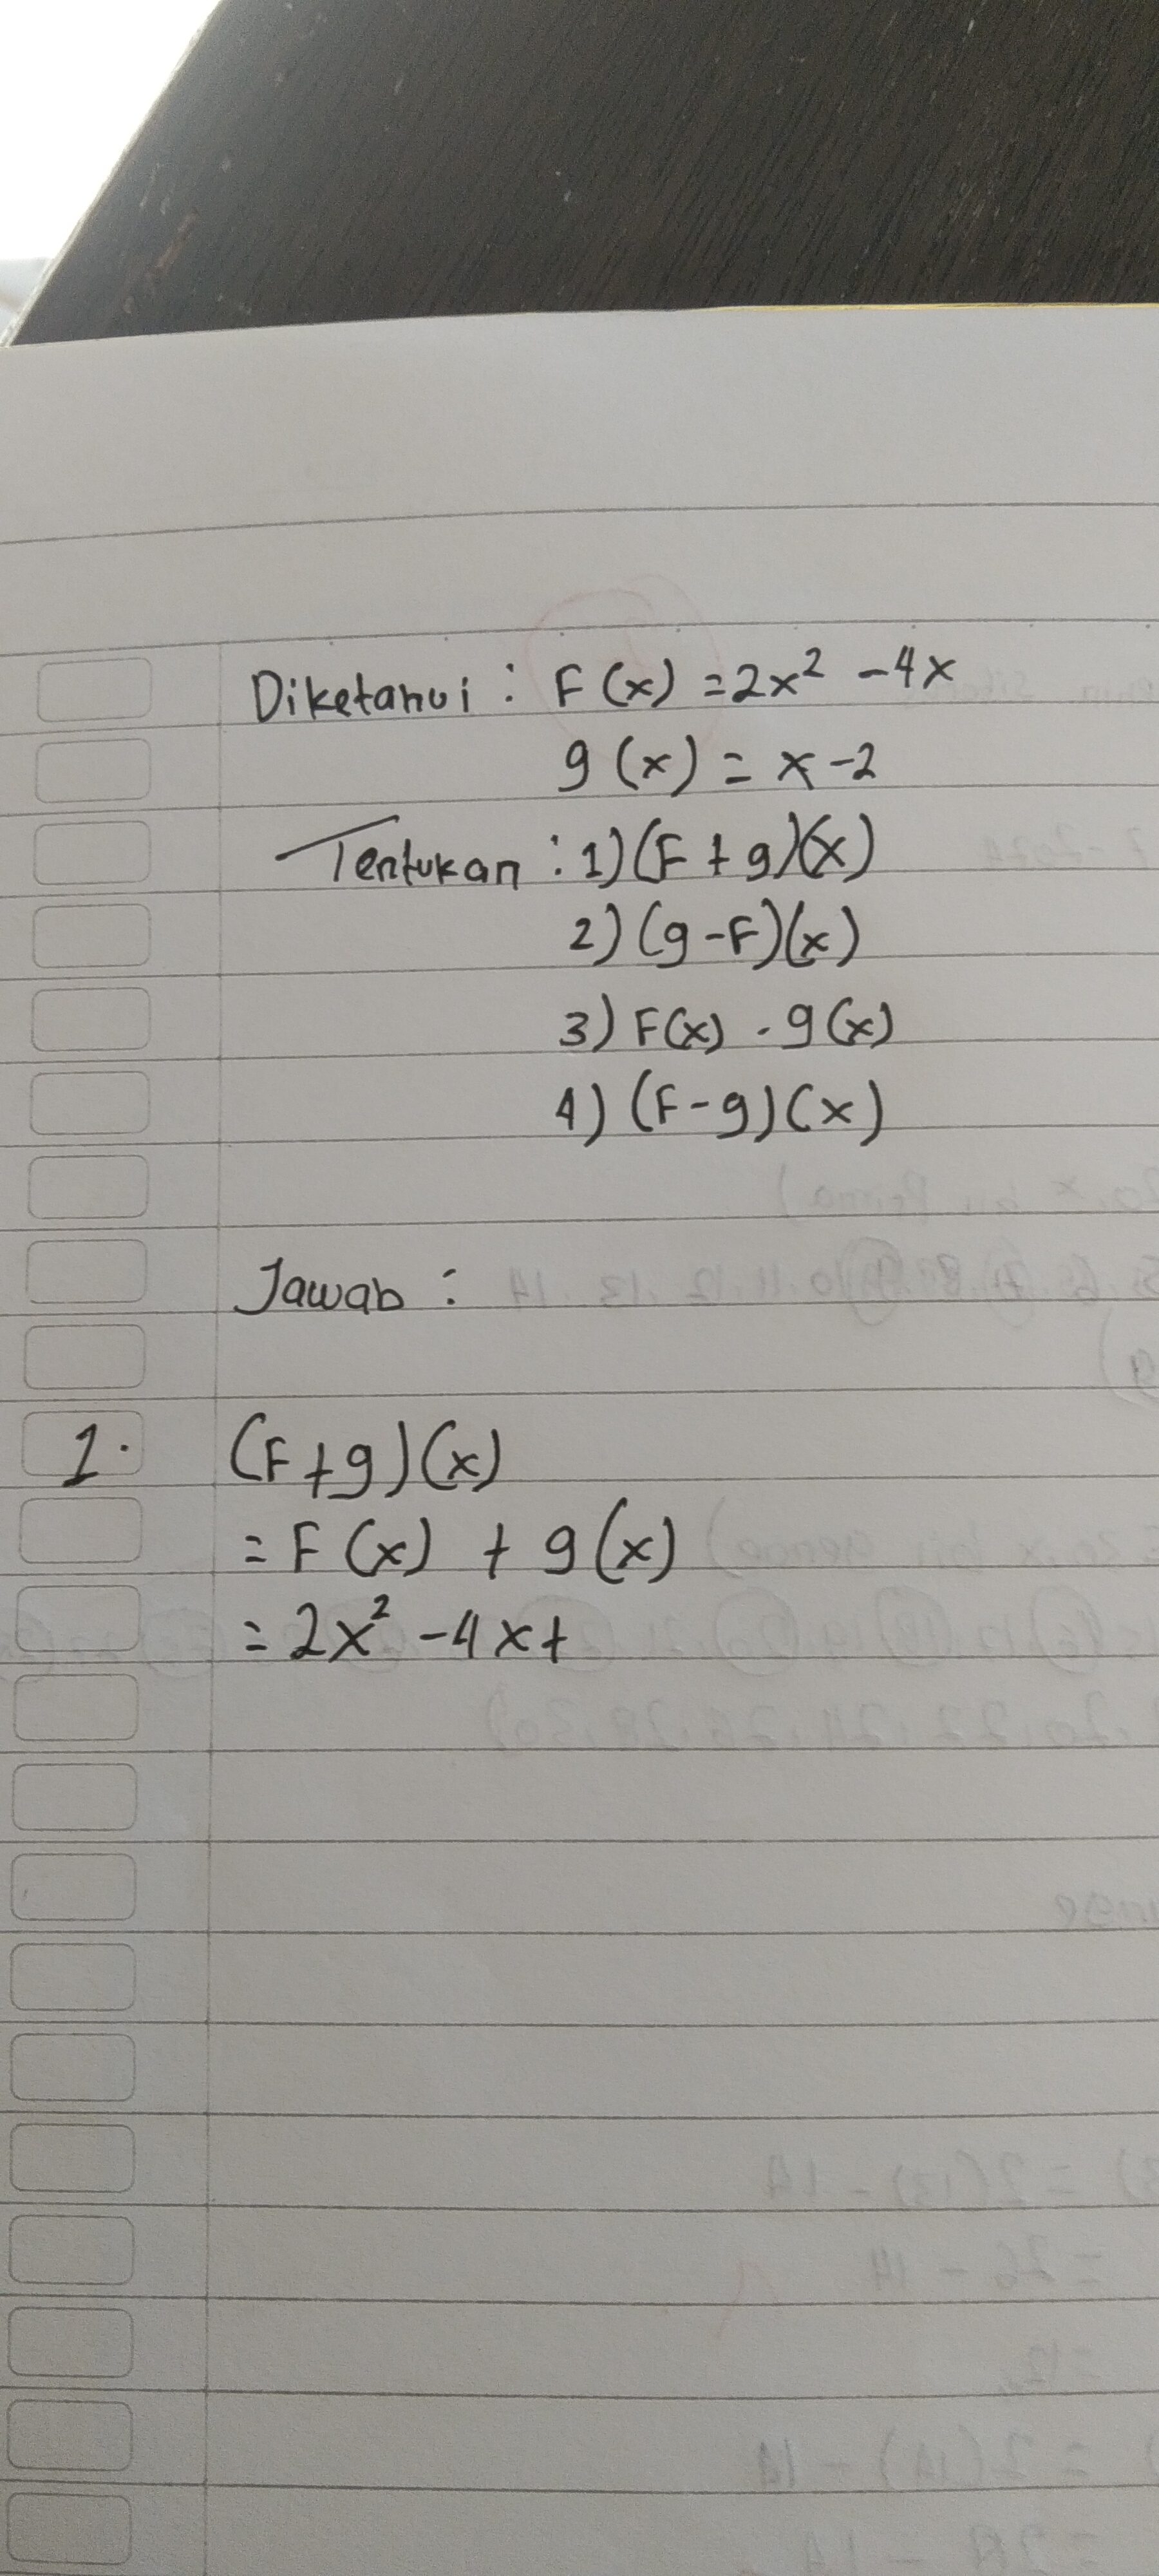 Diketahui : F (x) = 2x² - 4x
g (x) = x - 2
Tentukan : 1) (F + g)(x)
2) (g - F)(x)
3) F(x) . g(x)
4) (F - g) (x)
Jawab :
1. (F + g) (x)
= F (x) + g (x)
= 2x² - 4x +